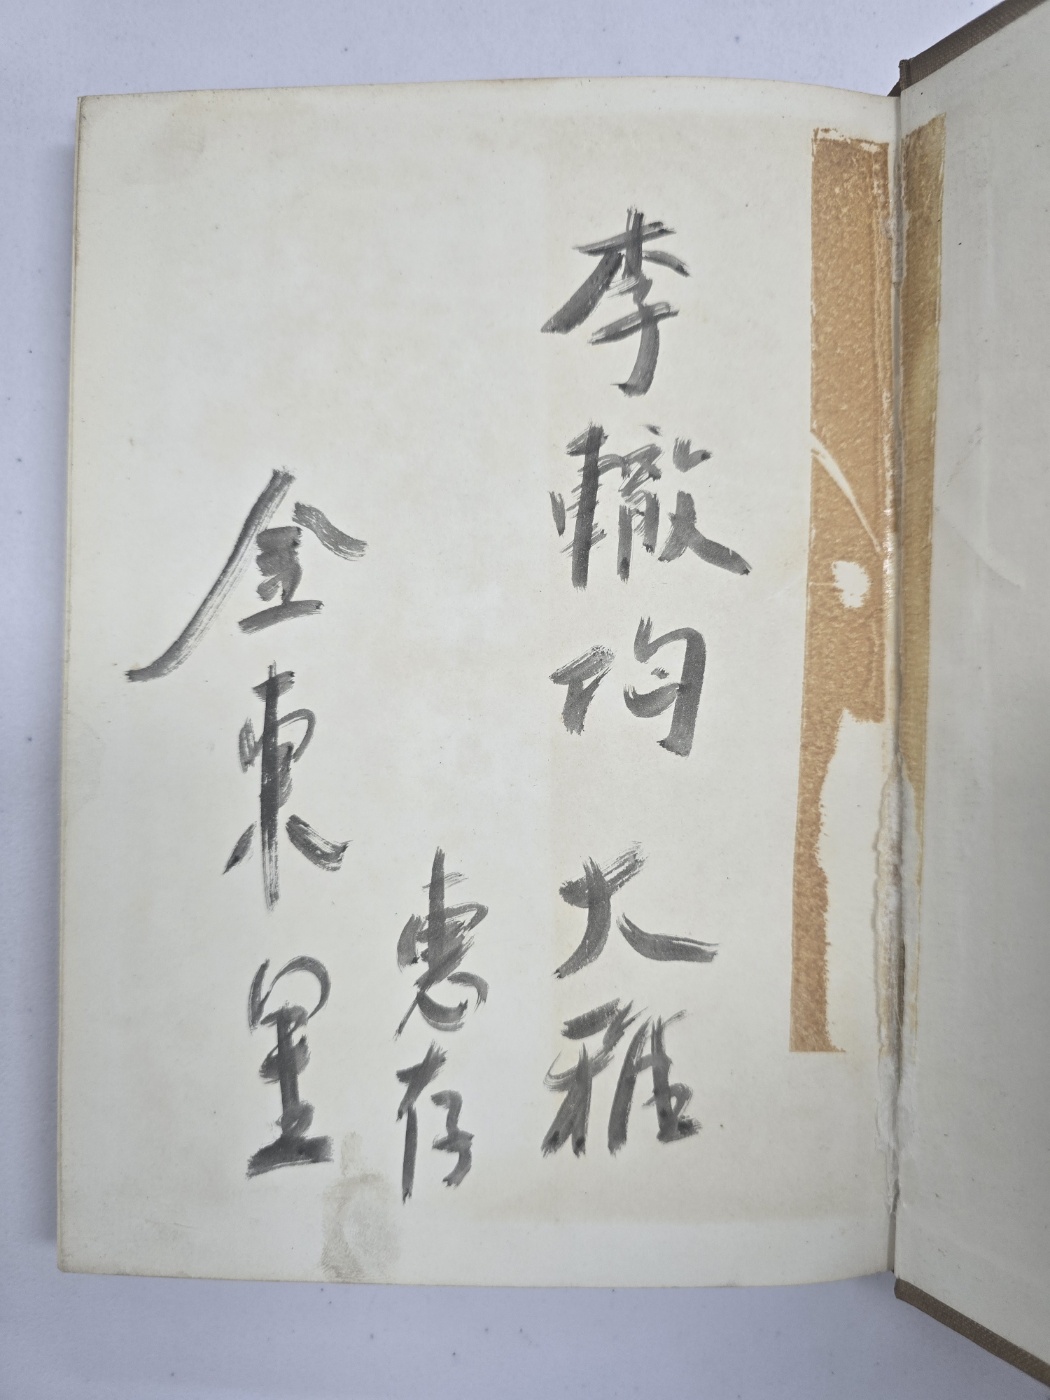 李轍均 大雅
惠存
金東里